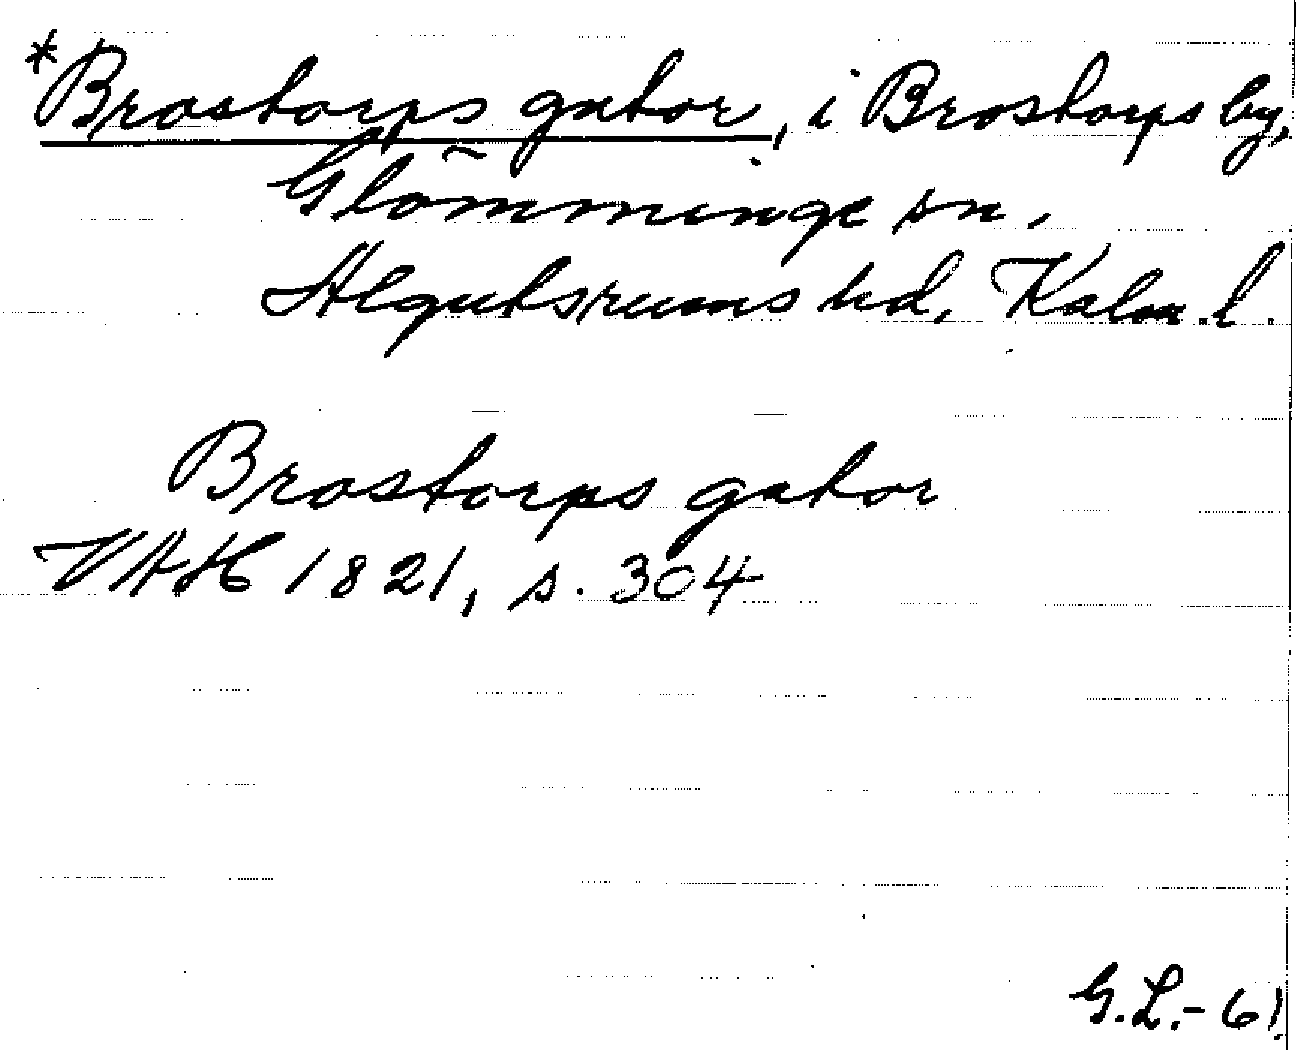 *Brostorps gator, i Brostorps by,
Glömminge sn.
Algutsrums hd, Kalm. l.
Brostorps gator
VAH 1821, s. 304
G.L.-61